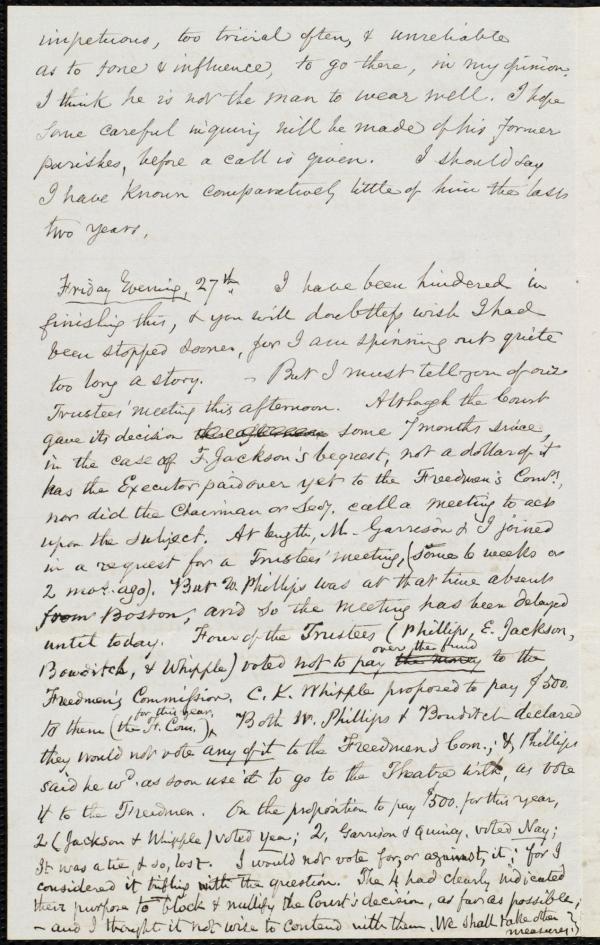 impetuous, too trivial often, & unreliable
as to tone & influence, to go there, in my opinion.
I think he is not the man to wear well. I hope
some careful inquiry will be made of his former
parishes, before a call is given. I should say
I have known comparatively little of him the last
two years.
Friday Evening, 27th. I have been hindered in
finishing this, & you will doubtless wish I had
been stopped sooner, for I am spinning out quite
too long a story. - But I must tell you of our
Trustees' meeting this afternoon. Although the Court
gave its decision this afternoon some 7 months since,
in the case of F. Jackson's bequest, not a dollar of it
has the Executor paid over yet to the Freedmen's Comn.,
nor did the Chairman or Secy. call a meeting to act
upon the subject. At length, Mr. Garrison & I joined
in a request for a Trustees' meeting, (some 6 weeks or
2 mos. ago). But W. Phillips was at that time absent
from Boston, and so the meeting has been delayed
until today. Four of the Trustees (Phillips, E. Jackson,
Bowditch, & Whipple) voted not to pay the money over the fund to the
Freedmen's Commission. C. K. Whipple proposed to pay $500.
to them for this year (the A. Com.). Both W. Phillips & Bowditch declared
they would not vote any of it to the Freedmen's Com.; & Phillips
said he wd. as soon use it to go to the Theatre with, as vote
it to the Freedmen. On the proposition to pay $500. for this year,
2 (Jackson & Whipple) voted Yea; 2, Garrison & Quincy, voted Nay;
It was a tie & so, lost. I would not vote for, or against, it; for I
considered it trifling with the question. The 4 had clearly indicated
their purpose to block & nullify the Court's decision, as far as possible;
- and I thought it not wise to contend with them. We shall take other
measures.